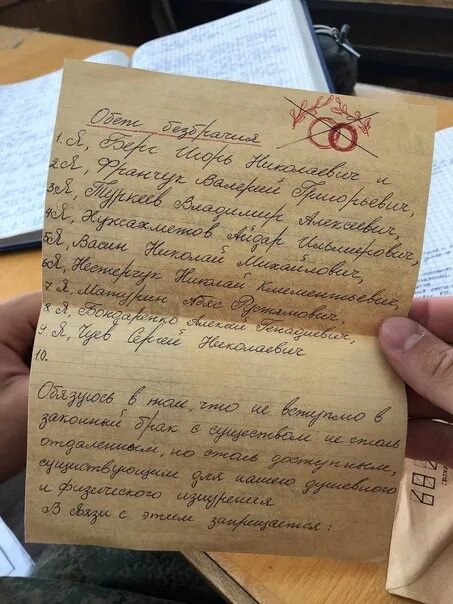 Обет безбрачия
1. Я, Берс Игорь Николаевич и
2 Я, Франчук Валерий Григорьевич,
3 Я, Туркеев Владимир Алексеевич,
4 Я, Хужсахметов Айдар Ильмирович,
5 Я, Васин Николай Михайлович,
6 Я, Нестерчук Николай Климентьевич,
7 Я, Матурин Аяс Рустямович,
8 Я, Бондаренко Алексей Генадиевич,
9 Я, Чуев Сергей Николаевич
10.
Обязуюсь в том, что не вступлю в
законный брак с существом не столь
отдаленным, но столь доступным,
существующим для нашего душевного
и физического изнурения
В связи с этим запрещается: